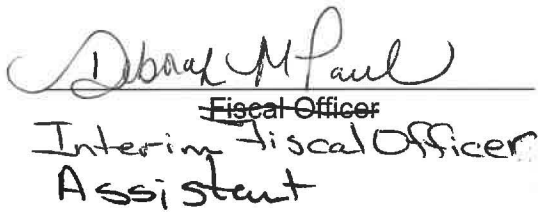 Deborah M Paul
Fiscal Officer
Interim Fiscal Officer
Assistant